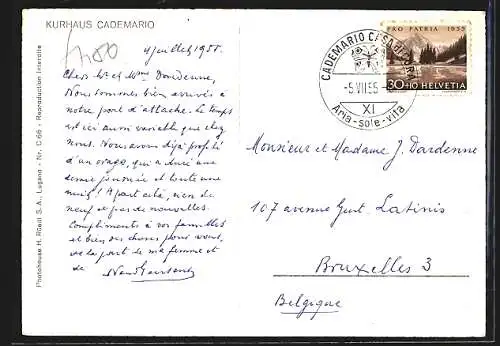 KURHAUS CADEMARIO
4 juillet 1955.
Chers Mr et Mme Dardenne,
Nous sommes bien arrivés à
notre port d'attache. Le temps
est ici aussi variable que chez
nous. Nous avons déjà profité
d'un orage, qui a duré une
demie journée et toute une
nuit! A part cela, rien de
neuf et pas de nouvelles.
Compliments à vos familles
et bien des choses pour vous,
de la part de ma femme et
de
Photohouse H. Rüedi S. A., Lugano - Nr. C 66 - Reproduction interdite
CADEMARIO
-5.VII.55-
XI
Aria-sole-vita
PRO PATRIA 1955
30+10 HELVETIA
Monsieur et Madame J. Dardenne
107 avenue Latinis
Bruxelles 3
Belgique